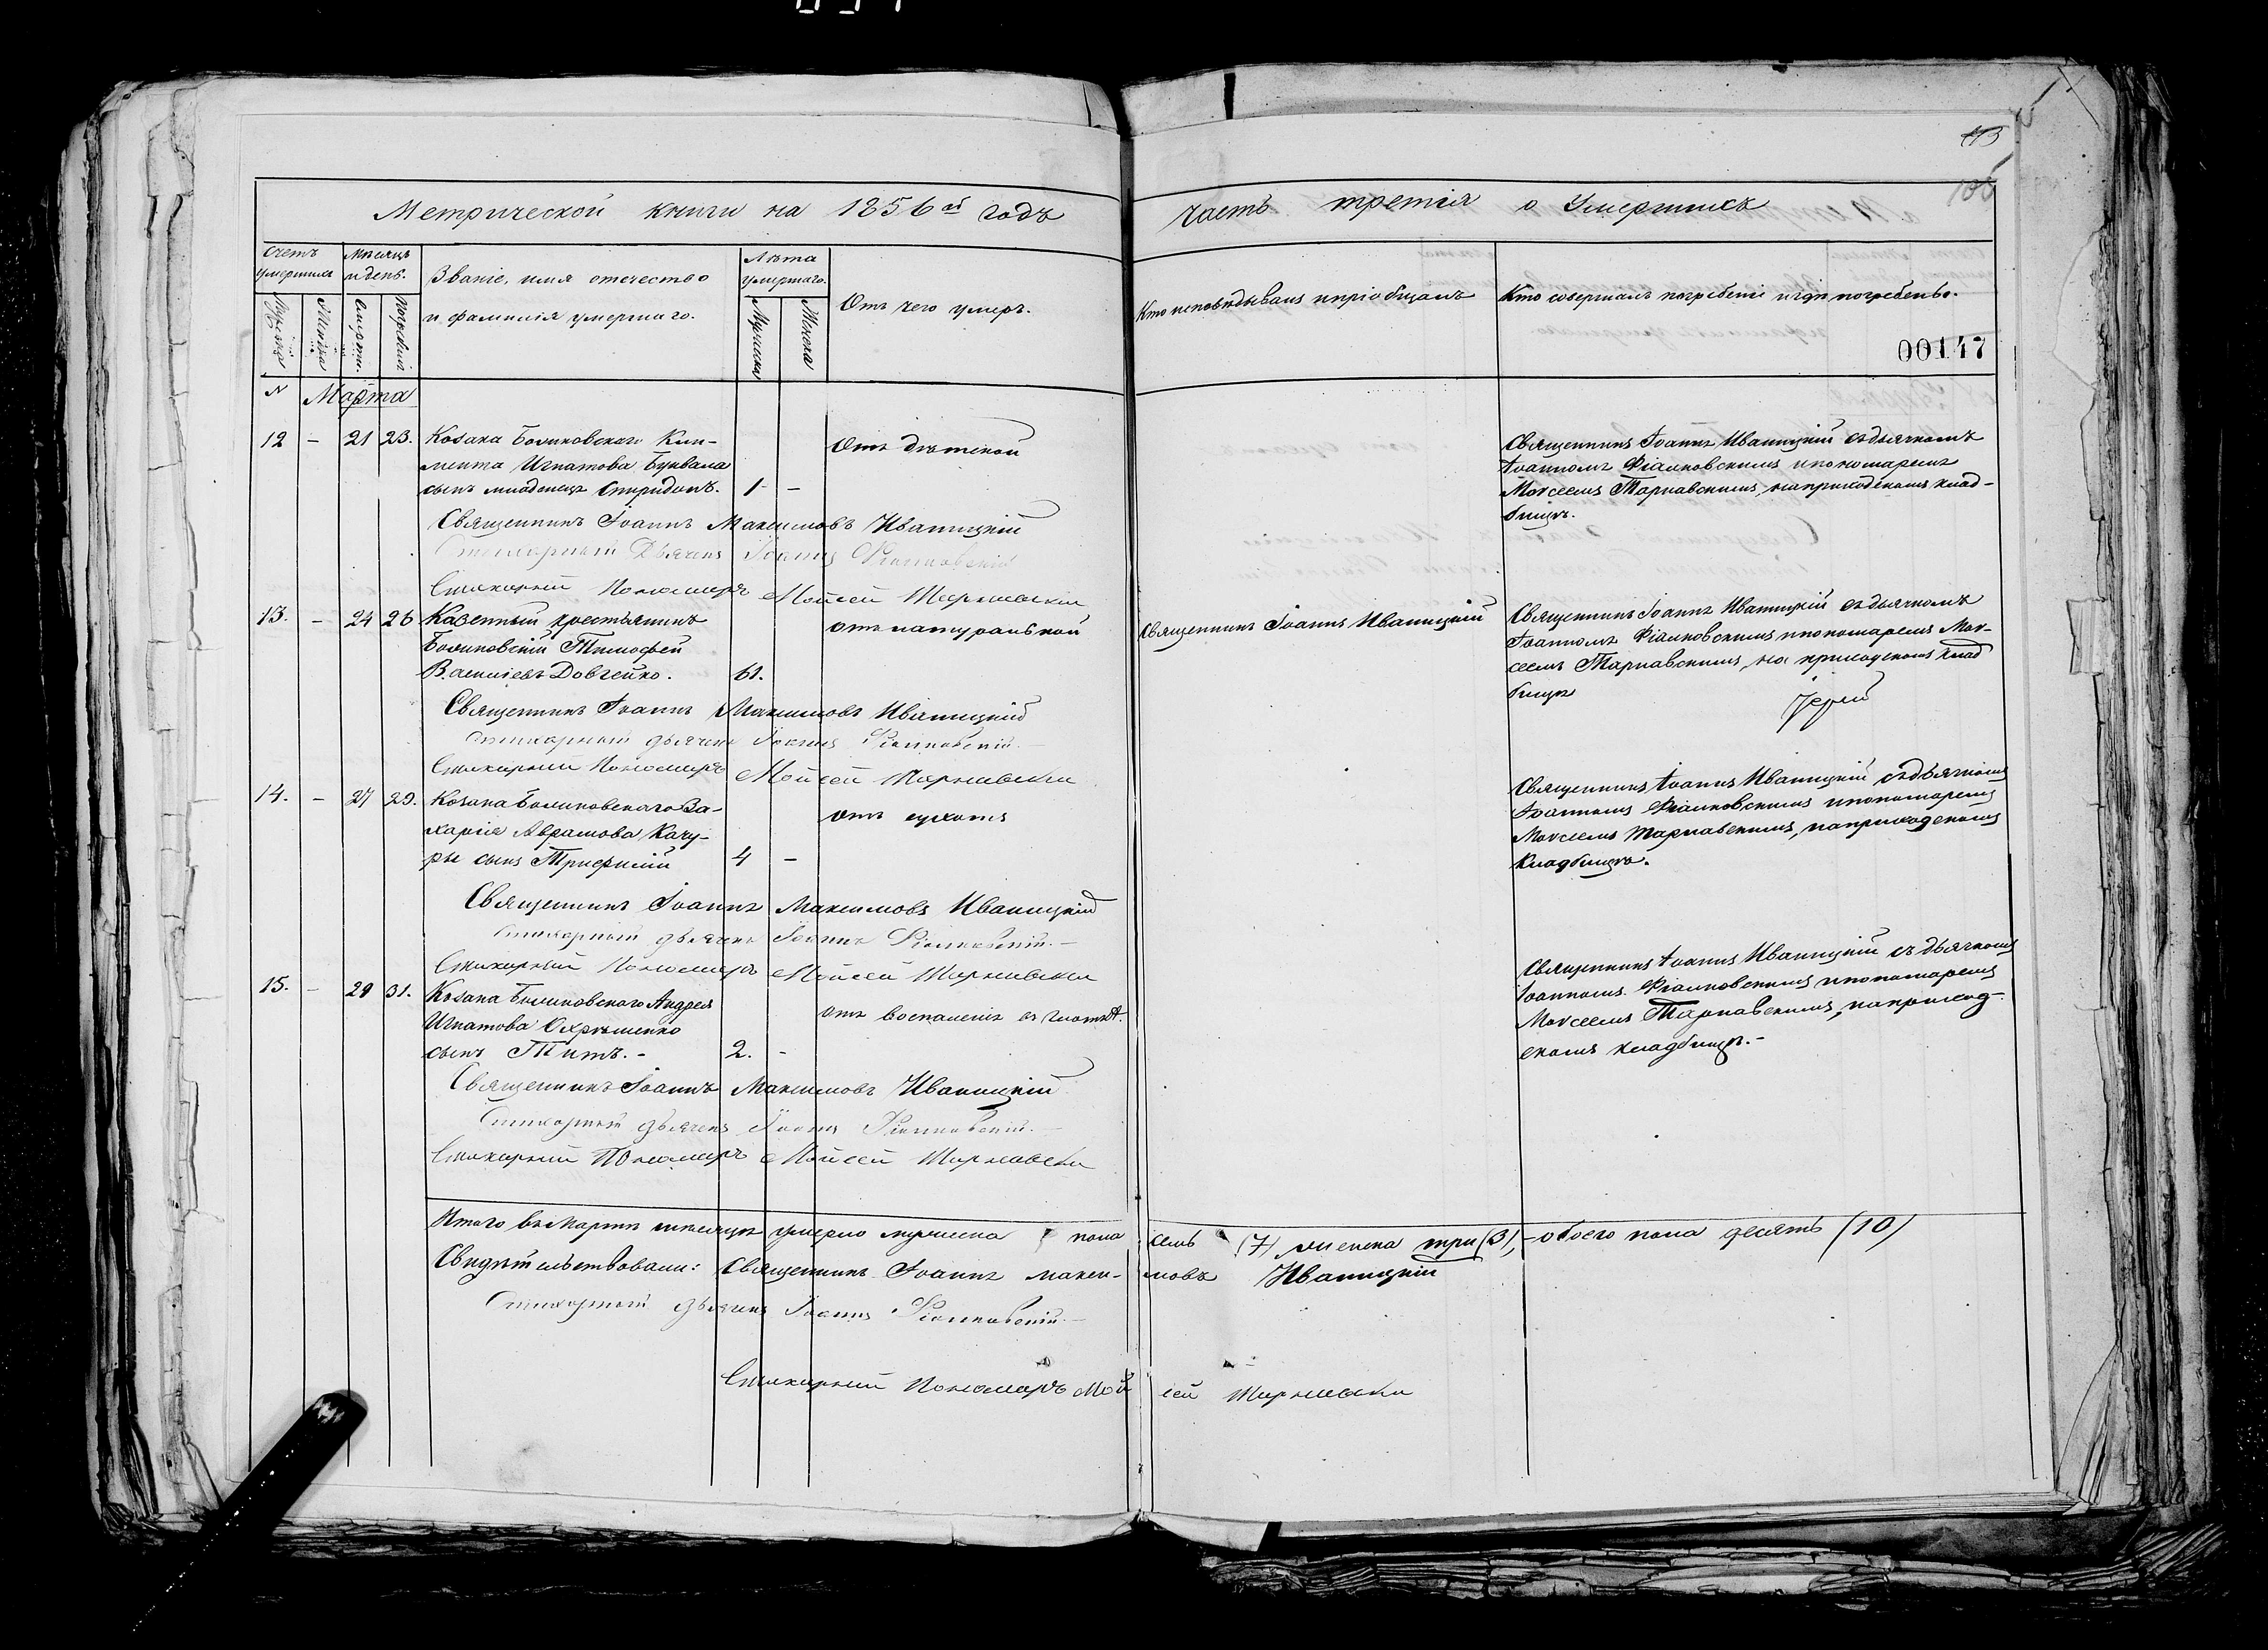 113
105
Метрической книги на 1856ой годъ
часть третія о Умершихъ
Счетъ умершихъ
Мѣсяцъ и день.
Званіе, имя отечество
и фамилія умершаго.
Лѣта умершаго.
Отъ чего умеръ.
Кто исповѣдывалъ и пріобщалъ
Кто совершалъ погребеніе и гдѣ погребены.
Мужска
Женска
Смерти.
Погребенія
Мужска
Женска
00147
N Марта
12 - 21 23. Козака Боликовскаго Кли-
мента Игнатова Буквала
сынъ младенецъ Спиридонъ. 1 -
Отъ дѣтской
Священникъ Іоаннъ Иваницкій съ дьячкомъ
Іоанномъ Фіалковскимъ и пономаремъ
Моѵсеемъ Тарнавскимъ, на приходскомъ клад-
бищѣ.
Священникъ Іоаннъ Максимовъ Иваницкій
Стихарный Дьячекъ Іоаннъ Фіалковскій
Стихарный Пономаръ Мойсей Тарнавскій
13. - 24 26 Казенный крестьянинъ
Боликовскій Тимофей
Василіевъ Довгейко. 61.
отъ натуральной
Священникъ Іоаннъ Иваницкій
Священникъ Іоаннъ Иваницкій съ дьячкомъ
Іоанномъ Фіалковскимъ и пономаремъ Моѵ-
сеемъ Тарнавскимъ, на приходскомъ клад
бищѣ
Іерей
Священникъ Іоаннъ Максимовъ Иваницкій
Стихарный дьячекъ Іоаннъ Фіалковскій.
Стихарный Пономаръ Мойсей Тарнавскій
14. - 27 29. Козака Боликовскаго За-
харія Аврамова Качу-
ры сынъ Трифилій 4 -
отъ сухотъ
Священникъ Іоаннъ Иваницкій съ дьячкомъ
Іоанномъ Фіалковскимъ и пономаремъ
Моѵсеемъ Тарнавскимъ, на приходскомъ
кладбищѣ.
Священникъ Іоаннъ Максимовъ Иваницкій
Стихарный дьячекъ Іоаннъ Фіалковскій. -
Стихарный Пономаръ Мойсей Тарнавскій
15. - 29 31. Козака Боликовскаго Андрея
Игнатова Охрѣменко
сынъ Титъ. - 2. -
отъ воспаленія въ
Священникъ Іоаннъ Иваницкій съ дьячкомъ
Іоанномъ Фіалковскимъ и пономаремъ
Моѵсеемъ Тарнавскимъ, на приход-
скомъ кладбищѣ. -
Священникъ Іоаннъ Максимовъ Иваницкій
Стихарный дьячекъ Іоаннъ Фіалковскій. -
Стихарный Пономаръ Мойсей Тарнавскій
Итого въ Мартѣ мѣсяцѣ умерло мужеска пола семь (7) женска три (3), - обоего пола десять (10)
Свидѣтельствовали: Священникъ Іоаннъ Макси- мовъ Иваницкій
Стихарный дьячекъ Іоаннъ Фіалковскій. -
Стихарный Пономаръ Мой сей Тарнавскій